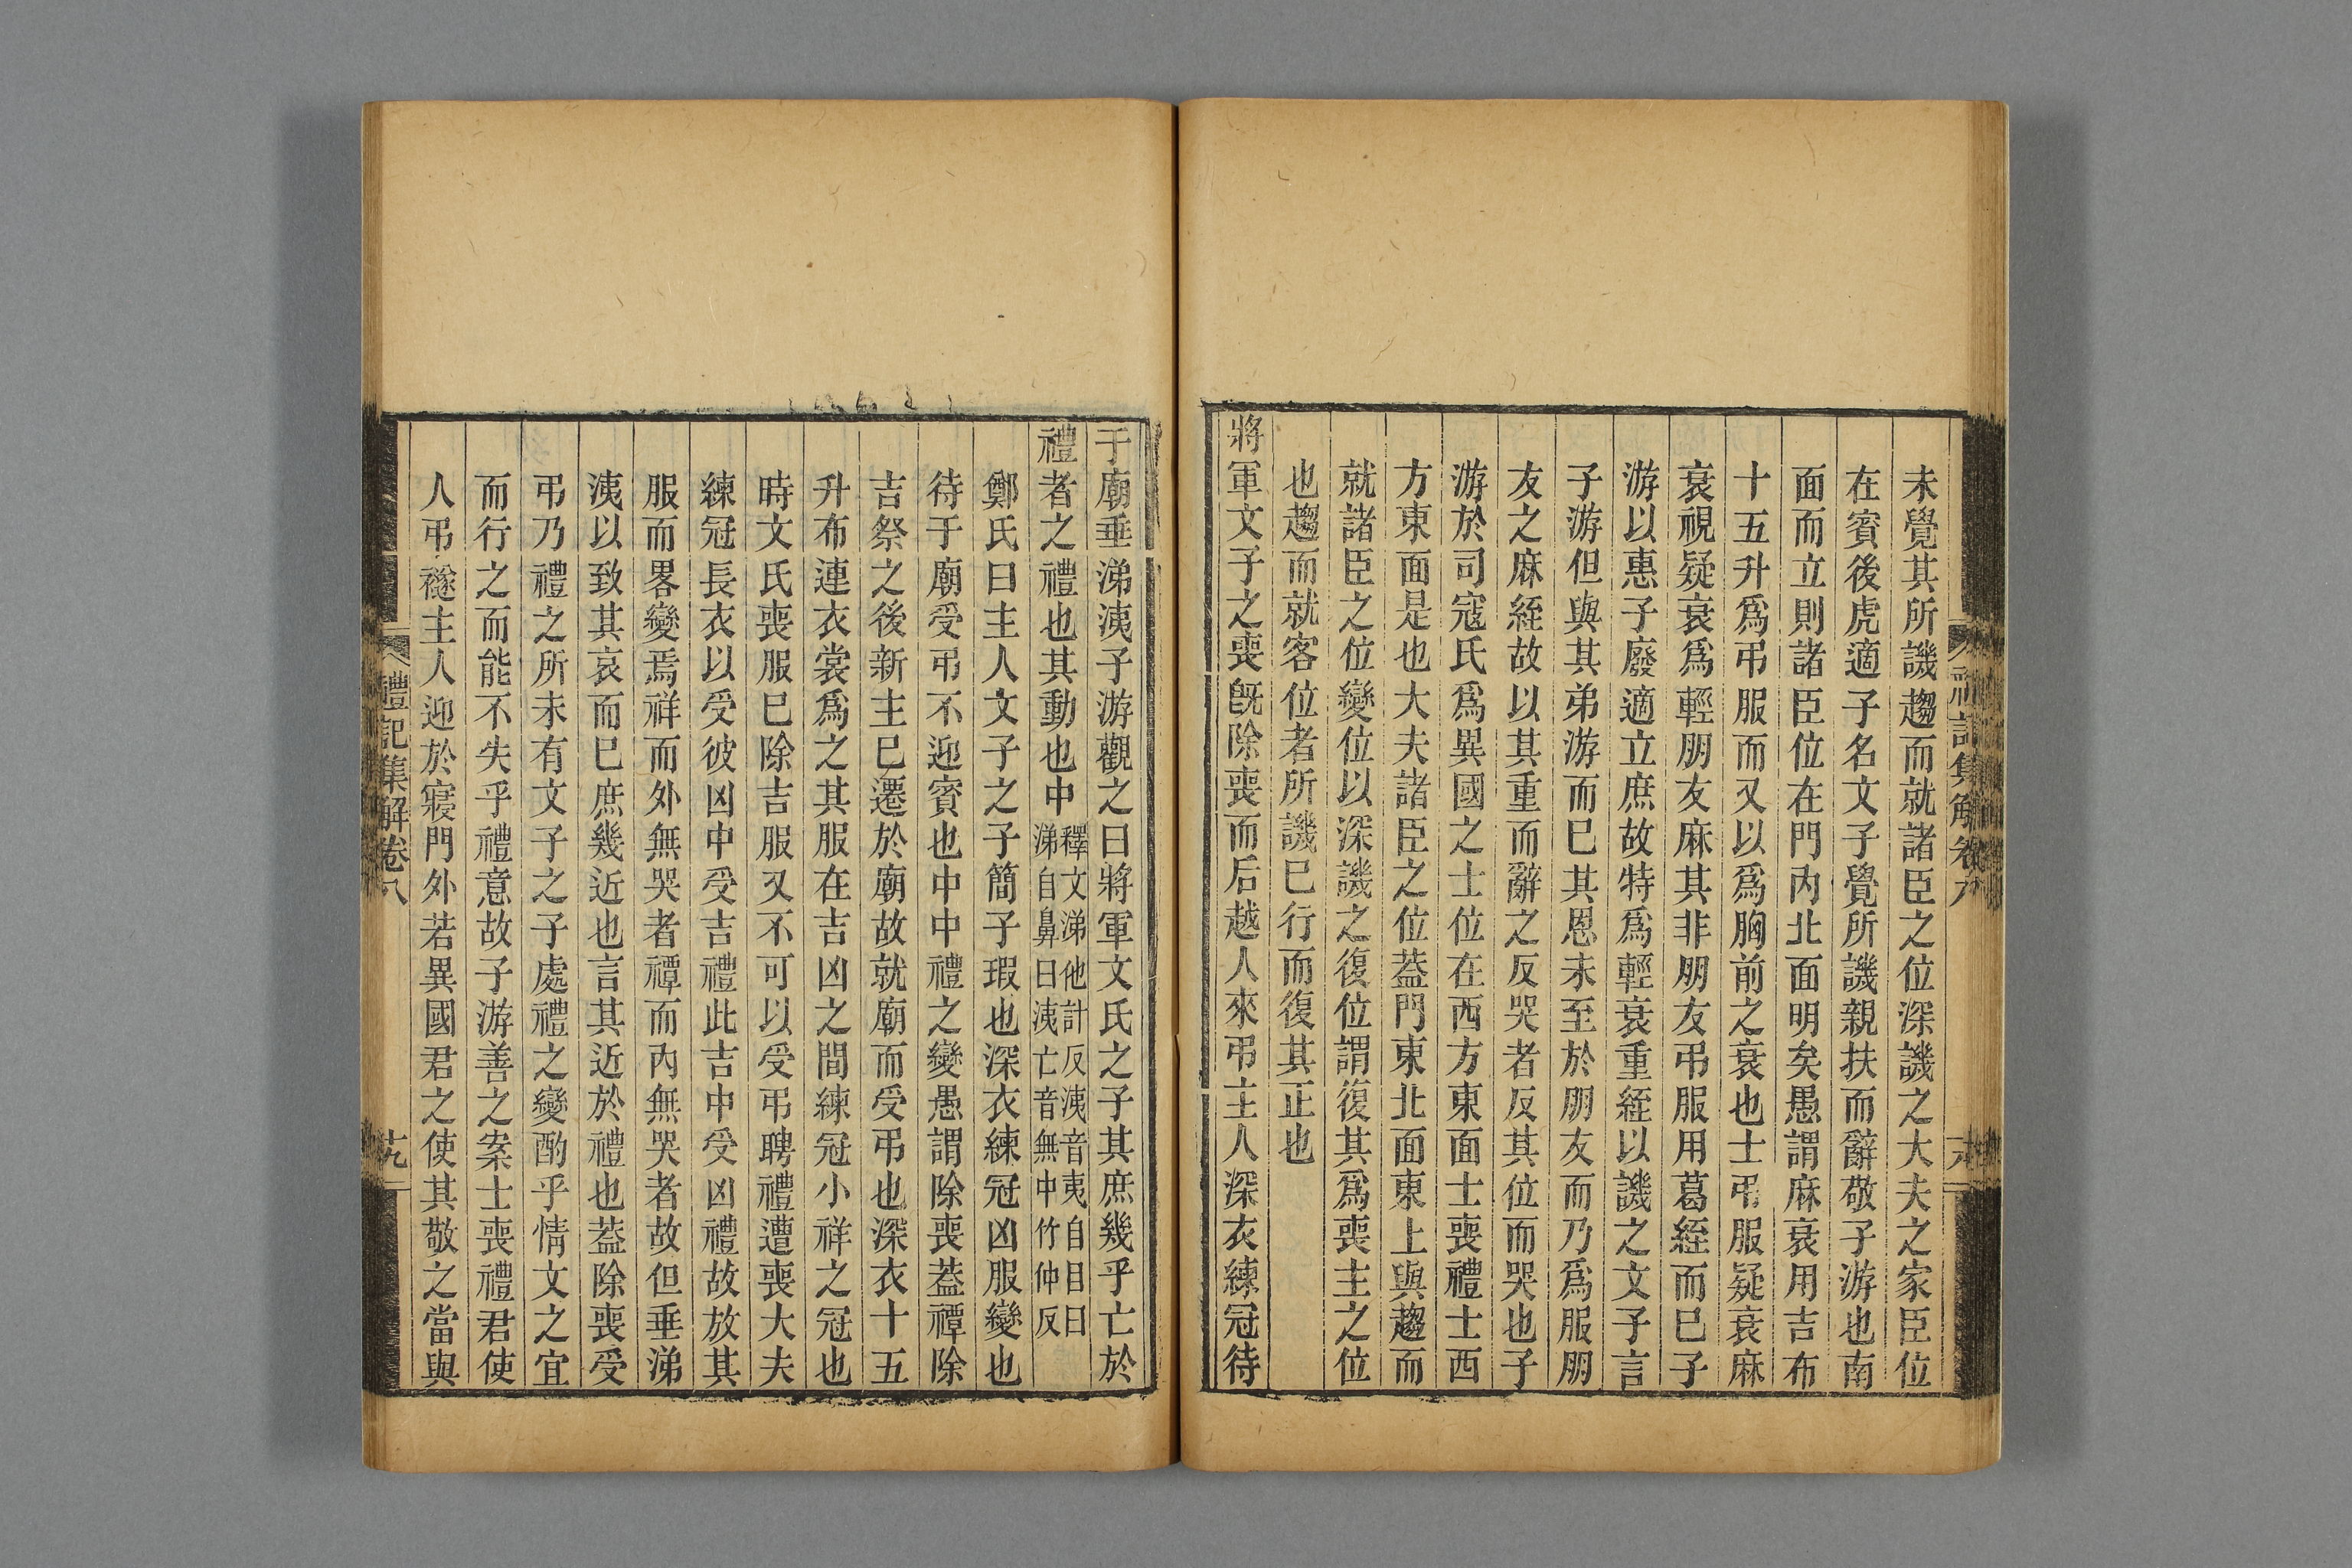 未覺其所譏趨而就諸臣之位深譏之大夫之家臣位
在賓後虎適子名文子覺所譏親扶而辭敬子游也南
面而立則諸臣位在門內北面明矣愚謂麻衰用吉布
十五升爲弔服而又以爲胸前之衰也士弔服疑衰麻
衰視疑衰爲輕朋友麻其非朋友弔服用葛絰而已子
游以惠子廢適立庶故特爲輕衰重絰以譏之文子言
子游但與其弟游而已其恩未至於朋友而乃爲服朋
友之麻絰故以其重而辭之反哭者反其位而哭也子
游於司寇氏爲異國之士位在西方東面士喪禮士西
方東面是也大夫諸臣之位葢門東北面東上與趨而
就諸臣之位變位以深譏之復位謂復其爲喪主之位
也趨而就客位者所譏已行而復其正也
將軍文子之喪旣除喪而后越人來弔主人深衣練冠待
于廟垂涕洟子游觀之曰將軍文氏之子其庶幾乎亡於
禮者之禮也其動也中釋文涕他計反洟音夷自目曰涕自鼻曰洟亡音無中竹仲反
鄭氏曰主人文子之子簡子瑕也深衣練冠凶服變也
待于廟受弔不迎賓也中中禮之變愚謂除喪葢禫除
吉祭之後新主已遷於廟故就廟而受弔也深衣十五
升布連衣裳爲之其服在吉凶之間練冠小祥之冠也
時文氏喪服已除吉服又不可以受弔聘禮遭喪大夫
練冠長衣以受彼凶中受吉禮此吉中受凶禮故放其
服而畧變焉祥而外無哭者禫而內無哭者故但垂涕
洟以致其哀而已庶幾近也言其近於禮也葢除喪受
弔乃禮之所未有文子之子處禮之變酌乎情文之宜
而行之而能不失乎禮意故子游善之案士喪禮君使
人弔襚主人迎於寢門外若異國君之使其敬之當與
禮記集解卷八
九